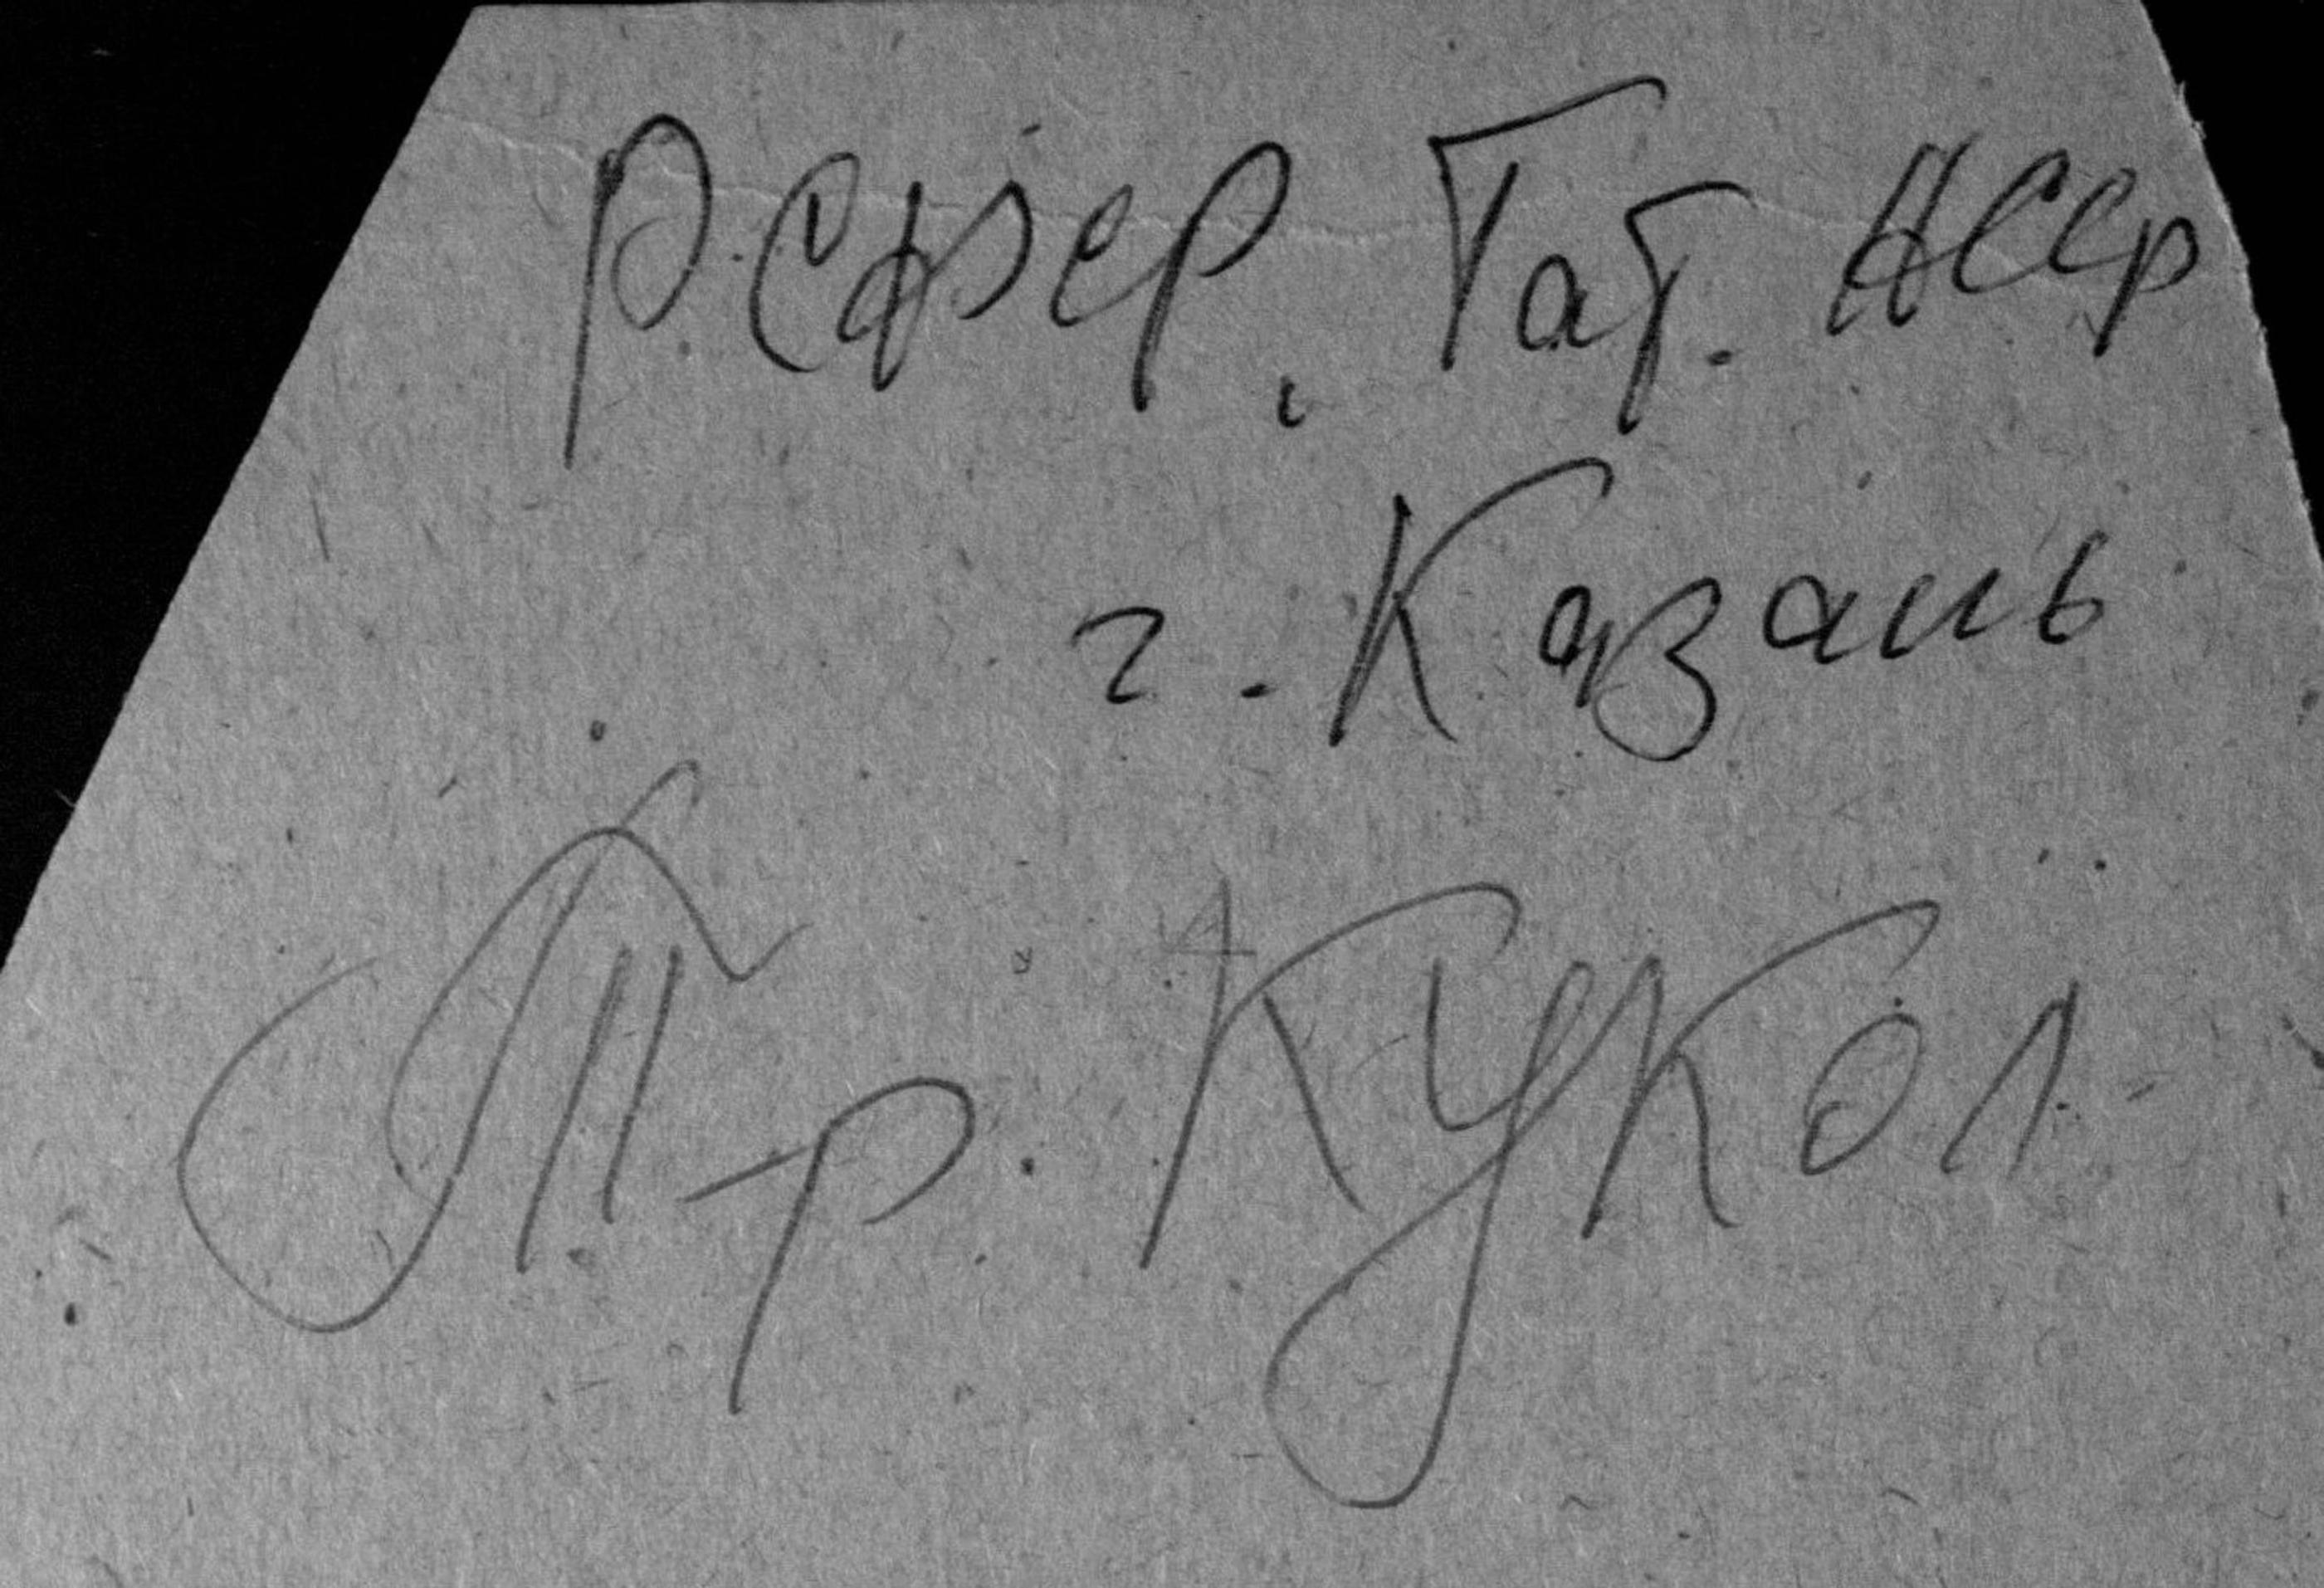 РСФСР. Тат. АССР
г. Казань
Т-р. Кукол